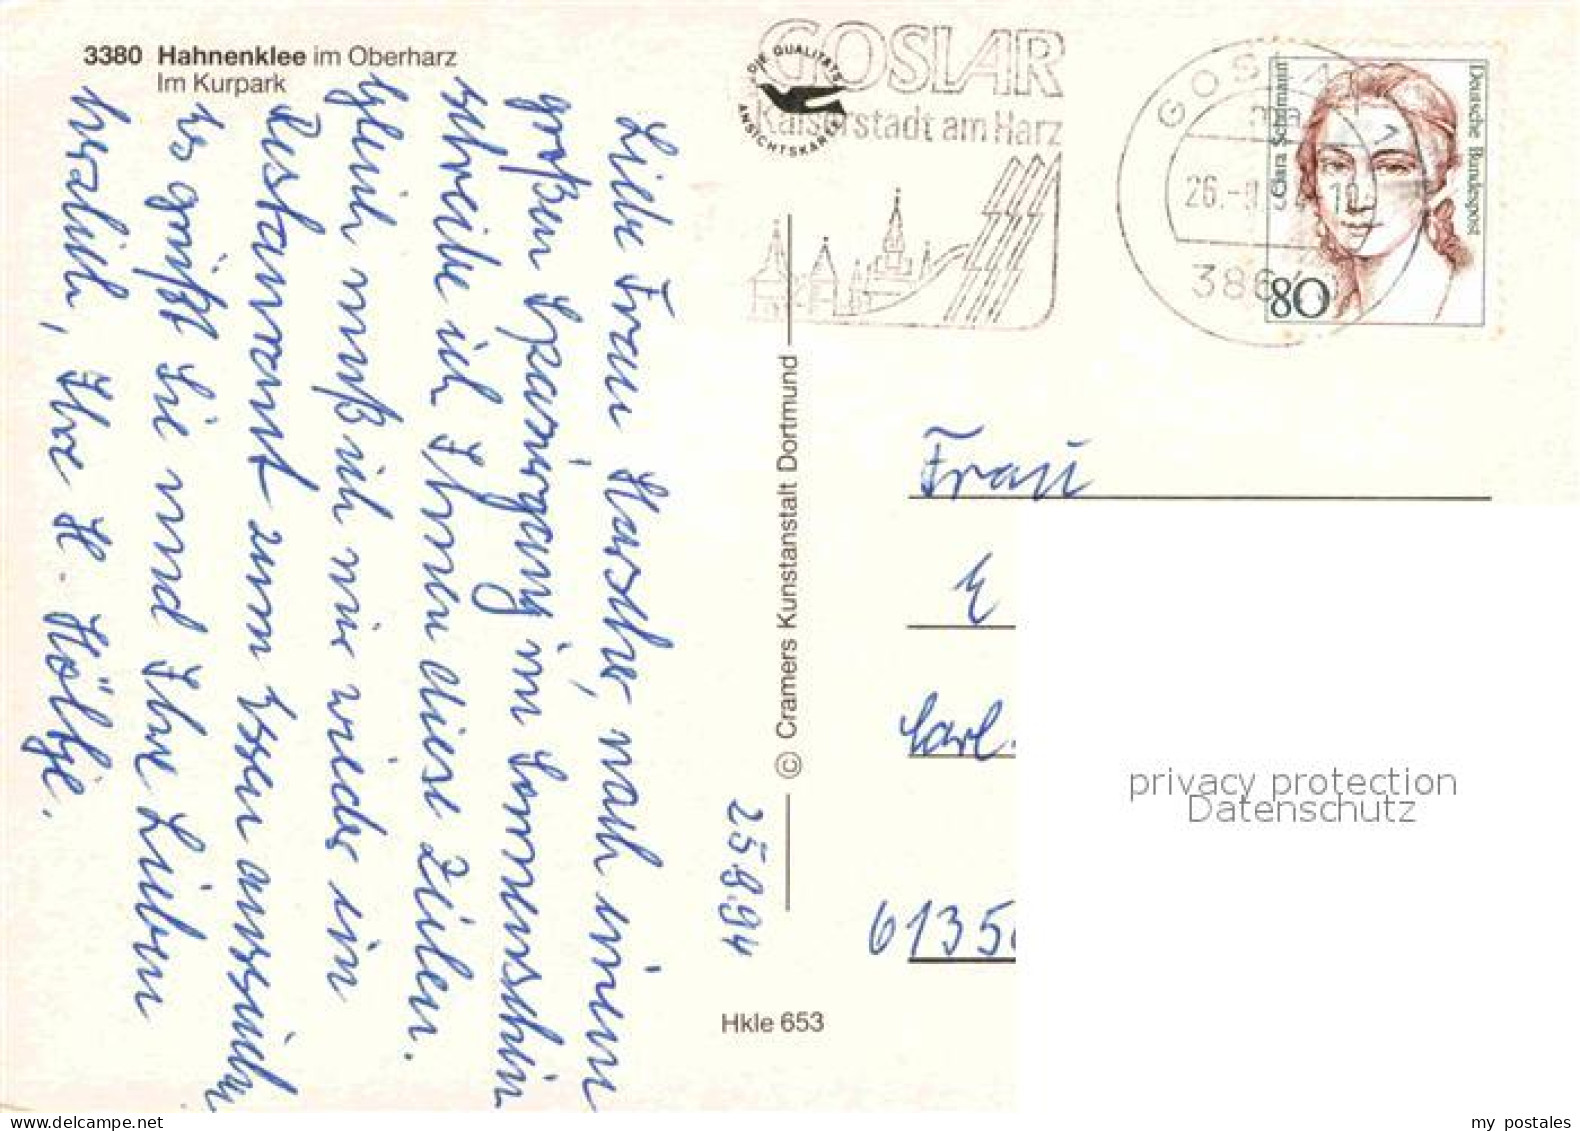 3380 Hahnenklee im Oberharz
Im Kurpark
Liebe Frau Harscher, nach einem
großen Spaziergang im Sonnenschein
schreibe ich Ihnen diese Zeilen.
Gleich muß ich mir wieder ein
Restaurant zum Essen aussuchen
Es grüßt Sie und Ihre Lieben
herzlich, Ihre H. Höltje.
25.9.94
DIE QUALITÄTS
ANSICHTSKARTE
GOSLAR
Kaiserstadt am Harz
GOSLAR 1
26.-9.94-10
386
Clara Schumann
Deutsche Bundespost
80
© Cramers Kunstanstalt Dortmund
Hkle 653
Frau
E
Carl.
6135
privacy protection
Datenschutz
my postales